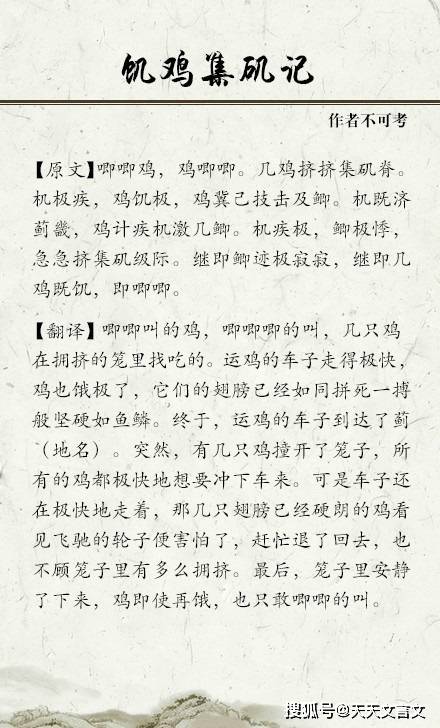 饥鸡集矶记
作者不可考
【原文】唧唧鸡，鸡唧唧。几鸡挤挤集矶脊。
机极疾，鸡饥极，鸡冀己技击及鲫。机既济
蓟畿，鸡计疾机激几鲫。机疾极，鲫极悸，
急急挤集矶级际。继即鲫迹极寂寂，继即几
鸡既饥，即唧唧。
【翻译】唧唧叫的鸡，唧唧唧的叫，几只鸡
在拥挤的笼里找吃的。运鸡的车子走得极快，
鸡也饿极了，它们的翅膀已经如同拼死一搏
般坚硬如鱼鳞。终于，运鸡的车子到达了蓟
（地名）。突然，有几只鸡撞开了笼子，所
有的鸡都极快地想要冲下车来。可是车子还
在极快地走着，那几只翅膀已经硬朗的鸡看
见飞驰的轮子便害怕了，赶忙退了回去，也
不顾笼子里有多么拥挤。最后，笼子里安静
了下来，鸡即使再饿，也只敢唧唧的叫。
搜狐号@天天文言文